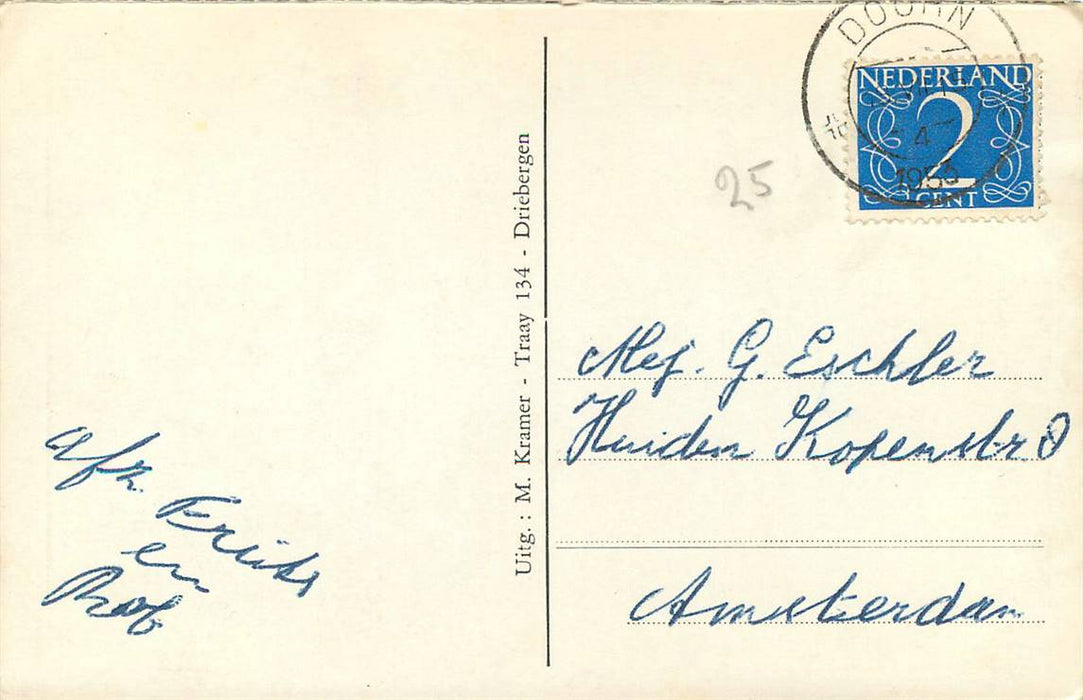 DOORN
4
1953
NEDERLAND
2
CENT
25
Uitg. : M. Kramer - Traay 134 - Driebergen
Mej. G. Eschler
Huiden Kopenstr 8
Amsterdam
afz. Frits
en
Rob